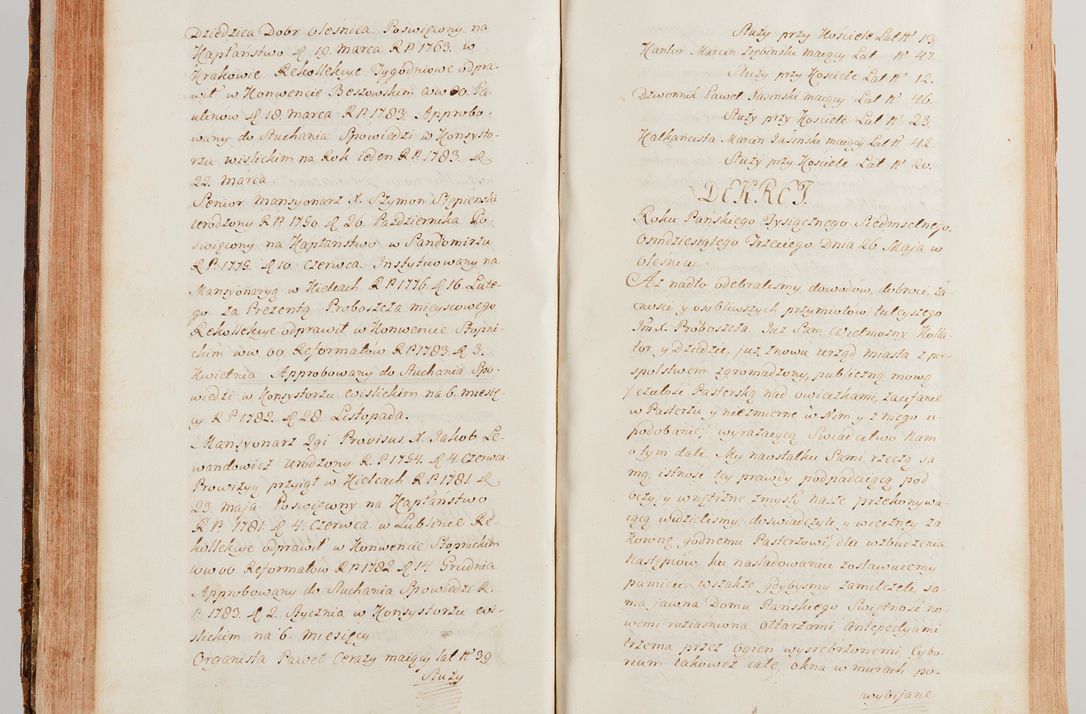 Dziedzica Dobr Olesnica. Poswięcony na
Kapłaństwo d. 19. marca R.P. 1763. w
Krakowie. Rekollekcye Tygodniowe odpra-
wił w Konwencie Beszowskim ww. oo. Pa-
ulinow d. 18. marca R.P. 1783. Approbo-
wany do Słuchania Spowiedzi w Konsysto-
rzu wislickim na Rok ieden R.P. 1783. d.
22. marca
Senior Mansyonarz X. Szymon Stępienski
urodzony R.P. 1750. d. 26. Pazdziernika Po-
swięcony na Kapłaństwo w Sandomirzu
R.P. 1775. d. 10. Czerwca. Instytuowany na
Mansyonaryą w Kielcach R.P. 1776. d. 16. Lute-
go za Prezentą Proboszcza mieyscowego
Rekollekcye odprawił w Konwencie Stopni-
ckim ww. oo. Reformatow R.P. 1783. d. 3.
Kwietnia. Approbowany do Słuchania Spo-
wiedzi w Konsystorzu wislickim na 6. miesię-
cy R.P. 1782. d. 28. Listopada.
Mansyonarz 2gi Provisus X. Jakob Le-
wandowicz urodzony R.P. 1754. d. 4. Czerwca
Prowizyą przyiął w Kielcach R.P. 1781. d.
23. Maja. Poswięcony na Kapłaństwo
R.P. 1781. d. 4. Czerwca. w Lublinie Re-
kollekcye odprawił w Konwencie Stopnickim
ww oo Reformatow R.P. 1782. d. 14. Grudnia
Approbowany do Słuchania Spowiedzi R.
P. 1783. d. 2. Stycznia w Konsystorzu wi-
slickim na 6. miesięcy.
Organista Paweł Ceraży maiący lat N° 39
Służy
Służy przy Kosciele Lat N° 13.
Kantor Marcin Zębinski maiący Lat N° 47.
Służy przy Kosciele Lat N° 12.
Dzwonnik Paweł Jasinski maiący Lat N° 46.
Służy przy Kosciele Lat N° 23.
Kalkancista Marcin Jasinski maiący Lat N° 42.
Służy przy Kosciele Lat N° 20.
DEKRET.
Roku Pańskiego Tysiącznego Siedmsetnego,
Osmdziesiątego Trzeciego Dnia 26. Maja w
Olesnicy.
Aż nadto odebralismy dowodow, dobroci, za-
cności, y osobliwszych przymiotow tuteyszego
Jmx. Proboszcza. Już Sam Wielmożny Kolla-
tor y Dziedzic, już znowu urząd miasta z po-
spolstwem zgromadzony, publiczną mową
/ czułość Pasterską nad owieczkami, zaufanie
w Pasterzu y niezmierne w Nim, y z niego u-
podobanie / wyrażaiącą Swiadectwo Nam
o tym dali. My naostatku Sami rzeczą sa-
mą, istność tey prawdy podpadaiącą pod
oczy, y wnętrzne zmysły nasze przekonywa-
iącą widzielismy, doswiadczyli, y wieczney za
Koronę godnemu Pasterzowi, dla wzbudzenia
Następcow, ku nasladowaniu zostawuiemy
pamięci. wszakże gdybysmy zamilczeli, sa-
ma jawna Domu Pańskiego Swiętność no-
wemi roziasniona Ołtarzami, Antepedyami
trzema przez ogien wysrebrzonemi, Cybo-
rium takoweż całe, okna w murach po-
wybijane